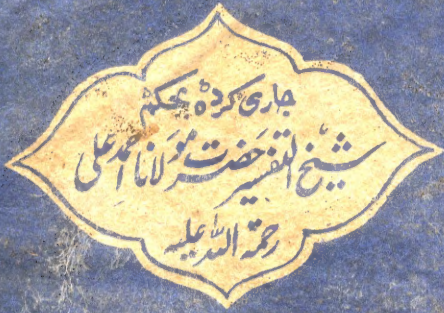 جاری کردہ بحکم
شیخ التفسیر حضرت مولانا احمد علی
رحمۃ اللہ علیہ